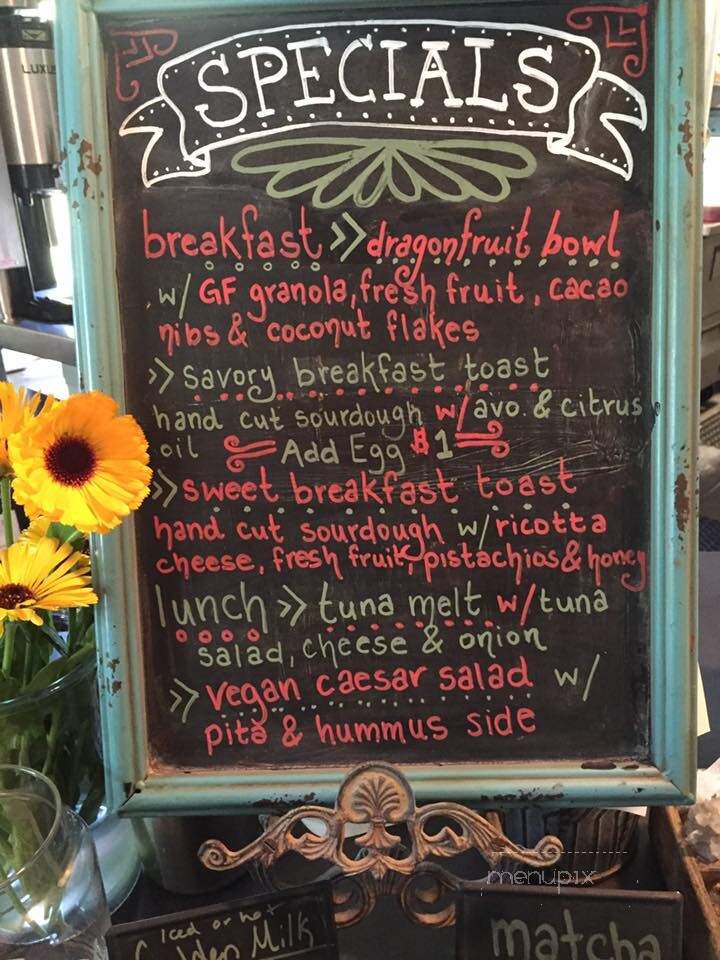 LUXUS
SPECIALS
breakfast >> dragonfruit bowl
w/ GF granola, fresh fruit, cacao
nibs & coconut flakes
>> savory breakfast toast
hand cut sourdough w/ avo & citrus
oil Add Egg $1
>> sweet breakfast toast
hand cut sourdough w/ ricotta
cheese, fresh fruit, pistachios & honey
lunch >> tuna melt w/ tuna
salad, cheese & onion
>> vegan caesar salad w/
pita & hummus side
menupix
Iced or hot
Golden Milk
matcha